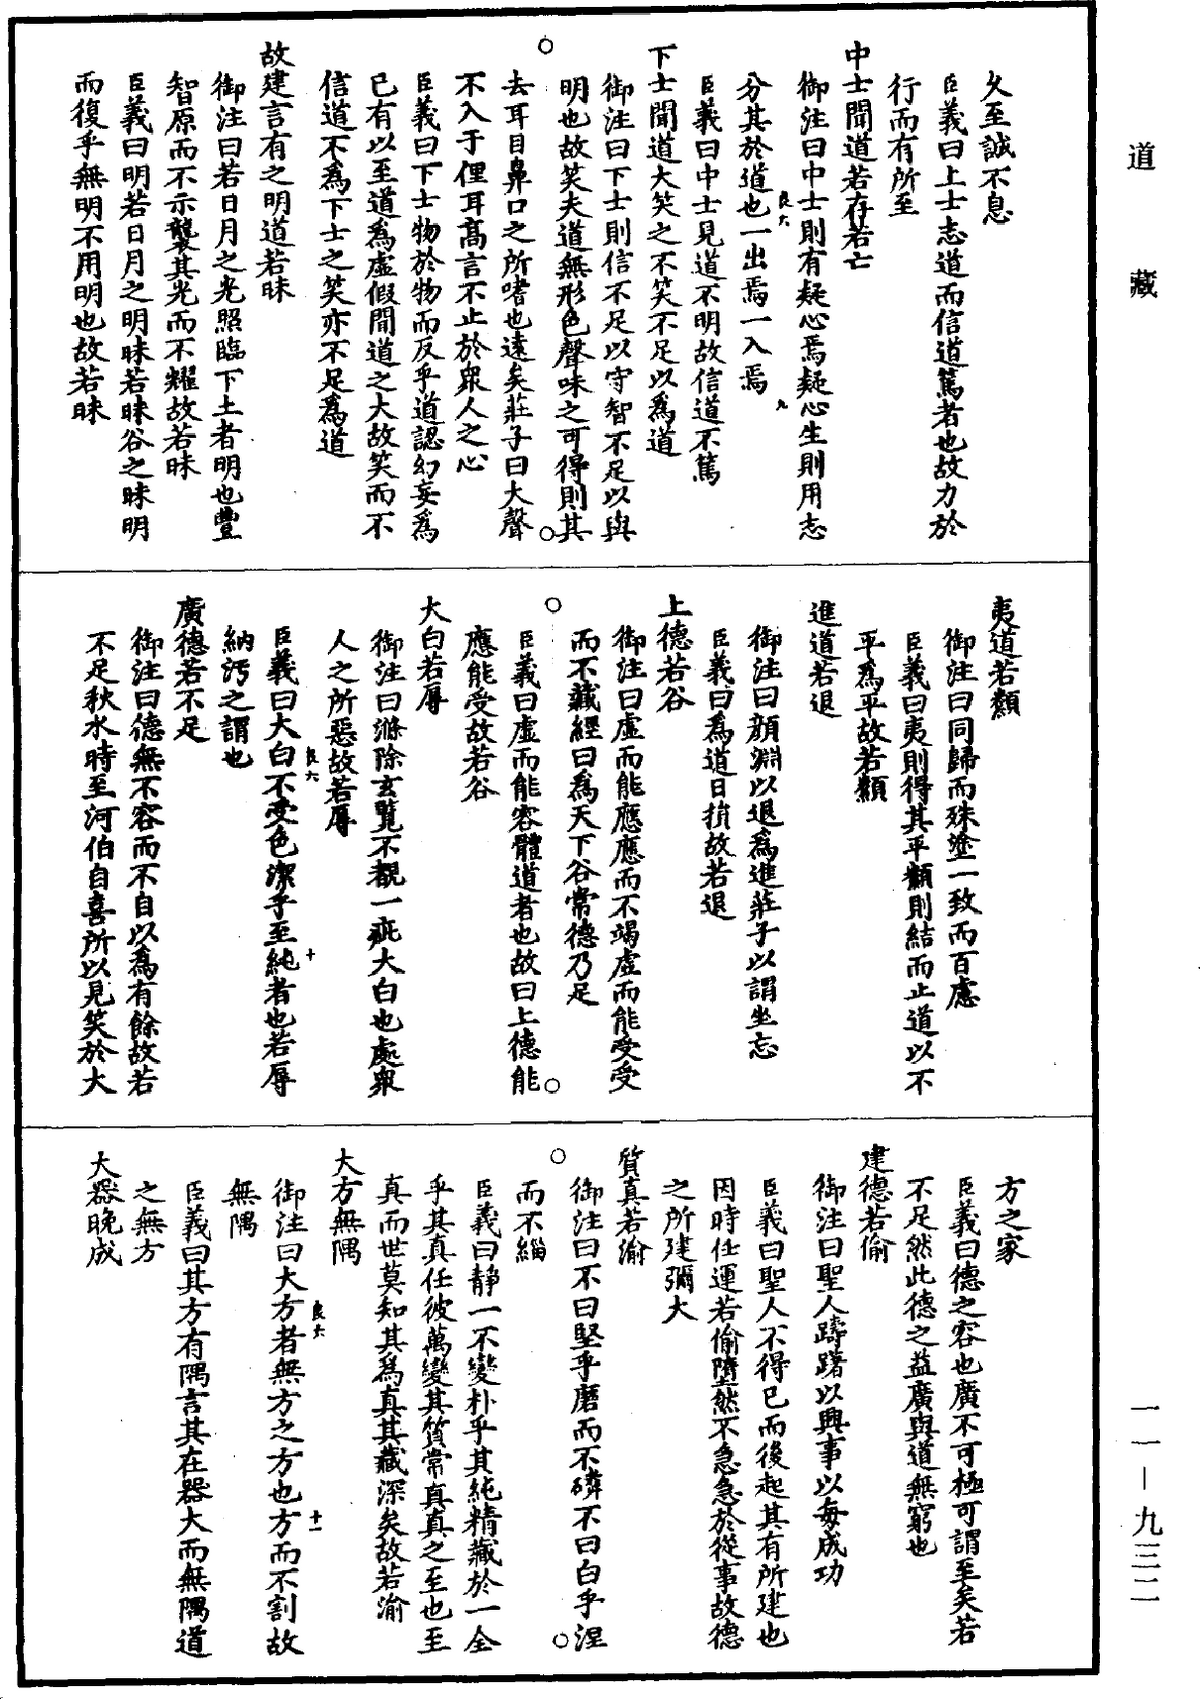 道藏
一一—九三二
久至誠不息
臣義曰上士志道而信道篤者也故力於
行而有所至
中士聞道若存若亡
御注曰中士則有疑心焉疑心生則用志
分其於道也一出焉一入焉
良六
九
臣義曰中士見道不明故信道不篤
下士聞道大笑之不笑不足以為道
御注曰下士則信不足以守智不足以與
明也故笑夫道無形色聲味之可得則其
去耳目鼻口之所嗜也遠矣莊子曰大聲
不入于俚耳高言不止於衆人之心
臣義曰下士物於物而反乎道認幻妄為
已有以至道為虛假聞道之大故笑而不
信道不為下士之笑亦不足為道
故建言有之明道若昧
御注曰若日月之光照臨下土者明也豐
智原而不示襲其光而不耀故若昧
臣義曰明若日月之明昧若昧谷之昧明
而復乎無明不用明也故若昧
夷道若纇
御注曰同歸而殊塗一致而百慮
臣義曰夷則得其平纇則結而止道以不
平為平故若纇
進道若退
御注曰顏淵以退為進莊子以謂坐忘
臣義曰為道日損故若退
上德若谷
御注曰虛而能應應而不竭虛而能受受
而不藏經曰為天下谷常德乃足
臣義曰虛而能容體道者也故曰上德能
應能受故若谷
大白若辱
御注曰滌除玄覽不覩一疵大白也處衆
人之所惡故若辱
臣義曰大白不受色潔乎至純者也若辱
良六
十
納汚之謂也
廣德若不足
御注曰德無不容而不自以為有餘故若
不足秋水時至河伯自喜所以見笑於大
方之家
臣義曰德之容也廣不可極可謂至矣若
不足然此德之益廣與道無窮也
建德若偷
御注曰聖人躊躇以興事以每成功
臣義曰聖人不得已而後起其有所建也
因時任運若偷墮然不急急於從事故德
之所建彌大
質真若渝
御注曰不曰堅乎磨而不磷不曰白乎涅
而不緇
臣義曰靜一不變朴乎其純精藏於一全
乎其真任彼萬變其質常真真之至也至
真而世莫知其為真其藏深矣故若渝
大方無隅
御注曰大方者無方之方也方而不割故
良六
十一
無隅
臣義曰其方有隅言其在器大而無隅道
之無方
大器晚成